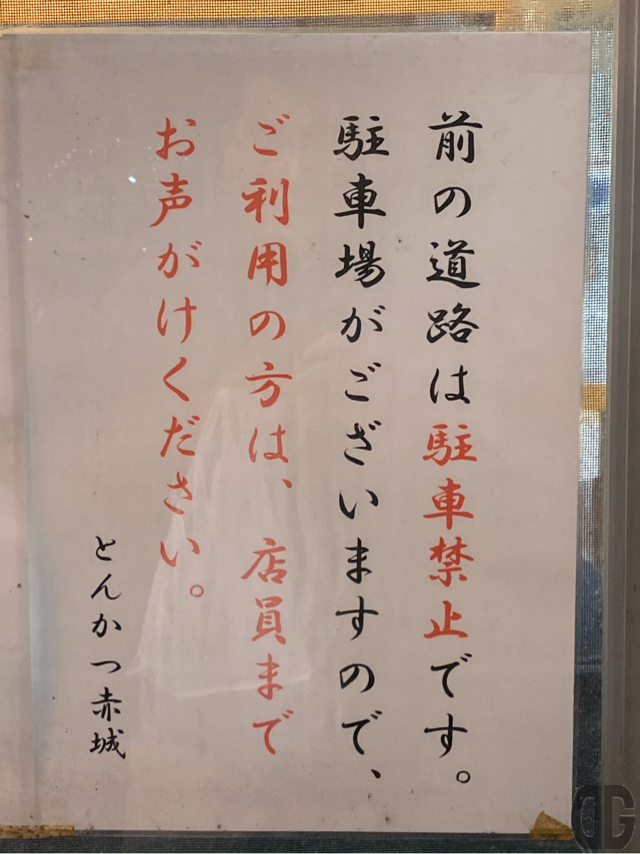 前の道路は駐車禁止です。
駐車場がございますので、
ご利用の方は、店員まで
お声がけください。
とんかつ赤城